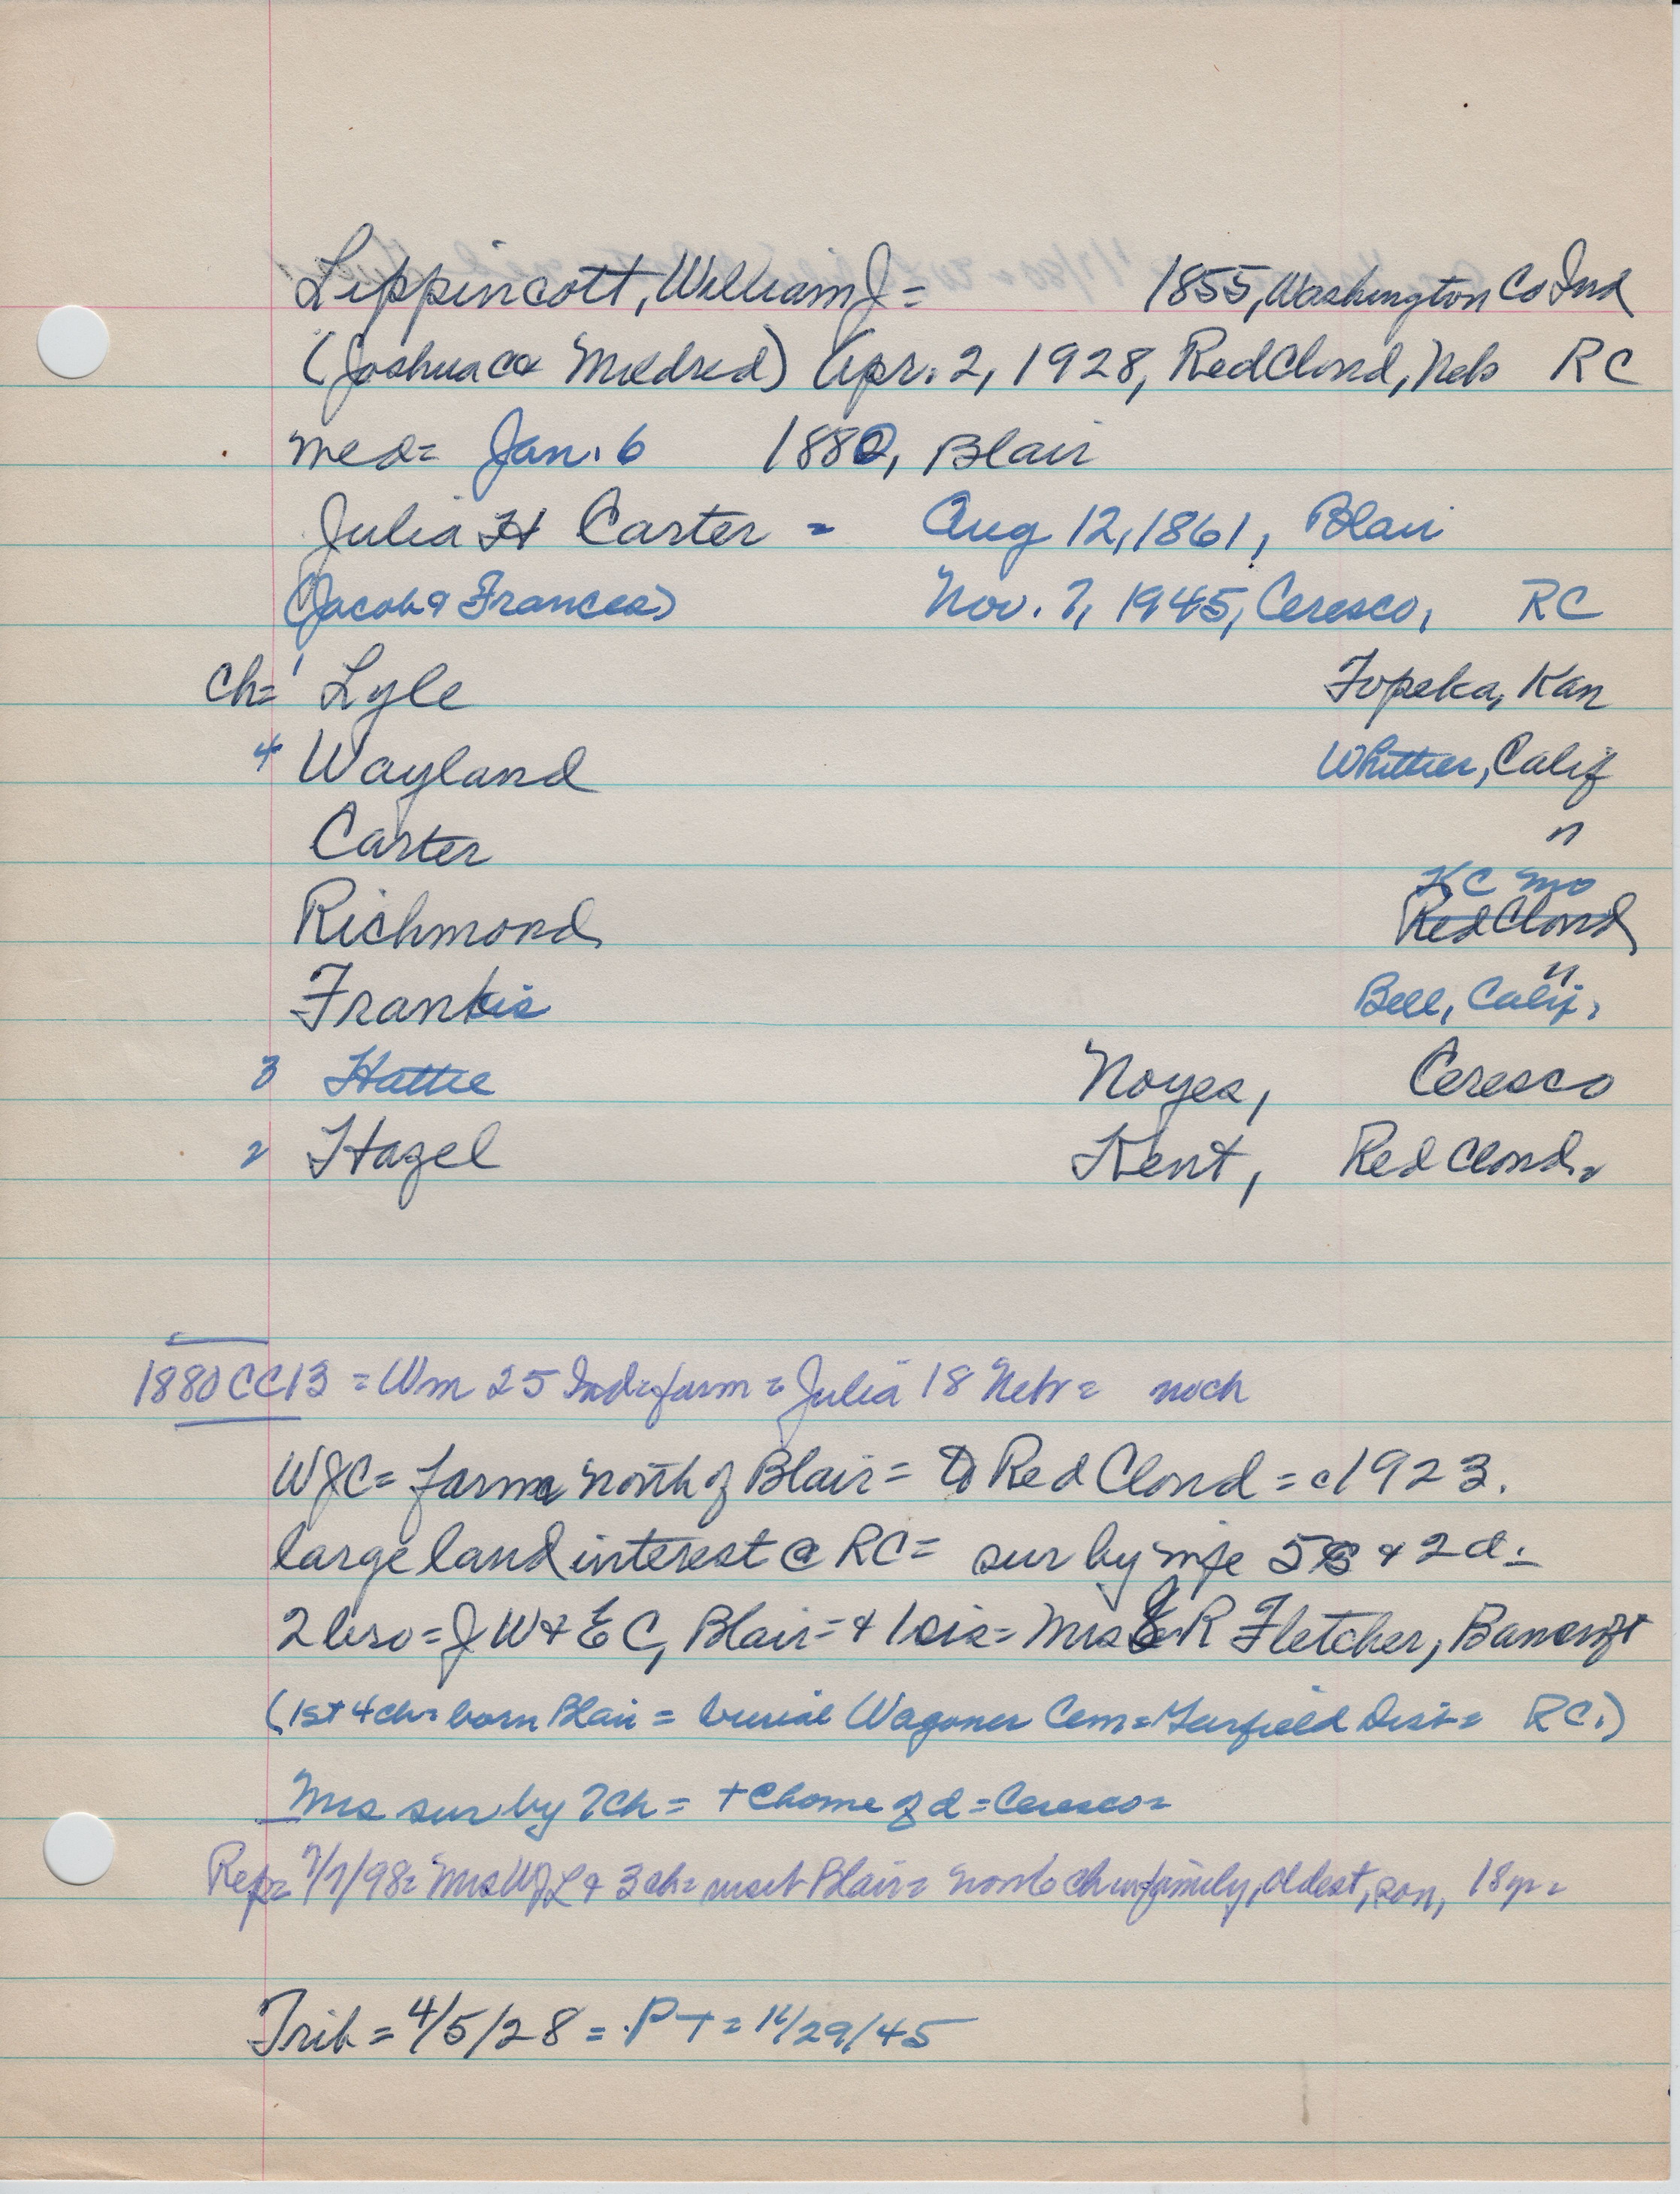 Lippincott, William J = 1855, Washington Co Ind
(Joshua & Mildred) Apr. 2, 1928, Red Cloud, Neb RC
med = Jan. 6 1880, Blair
Julia H Carter = Aug 12, 1861, Blair
(Jacob & Frances) Nov. 7, 1945, Ceresco, RC
ch = 1 Lyle Topeka, Kan
4 Wayland Whittier, Calif
Carter "
KC Mo
Richmond Red Cloud
"
Frankis Bell, Calif.
3 Hattie Noyes, Ceresco
2 Hazel Kent, Red Cloud =
1880 CC13 = Wm 25 Ind = farm = Julia 18 Neb = no ch
WJC = farm north of Blair = to Red Cloud = c1923.
large land interest @ RC = sur by wife 5s & 2d =
2 bro = J W & E C, Blair = + 1 sis = Mrs R Fletcher, Bancroft
(1st 4 ch = born Blair = burial Wagoner Cem = Garfield Dist = RC.)
Mrs sur by 7ch = + @ home of d = Ceresco =
Rep = 7/7/98 = Mrs WJL & 3 ch = Blair = family, oldest, son, 18 yr =
Trib = 4/5/28 = PT = 11/29/45